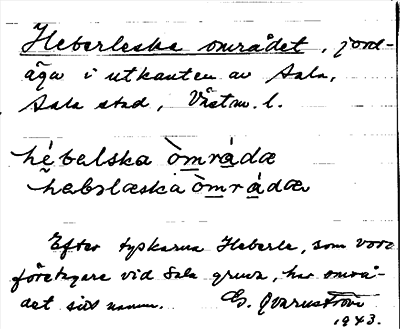 Heberleska området, jord-
äga i utkanten av Sala,
Sala stad, Västm. l.
hébəlska òmrådæ
hæbəlæska òmrådæ
Efter tyskarna Heberle, som voro
företagare vid Sala gruva, har områ-
det sitt namn. G. Qvarnström
1943.